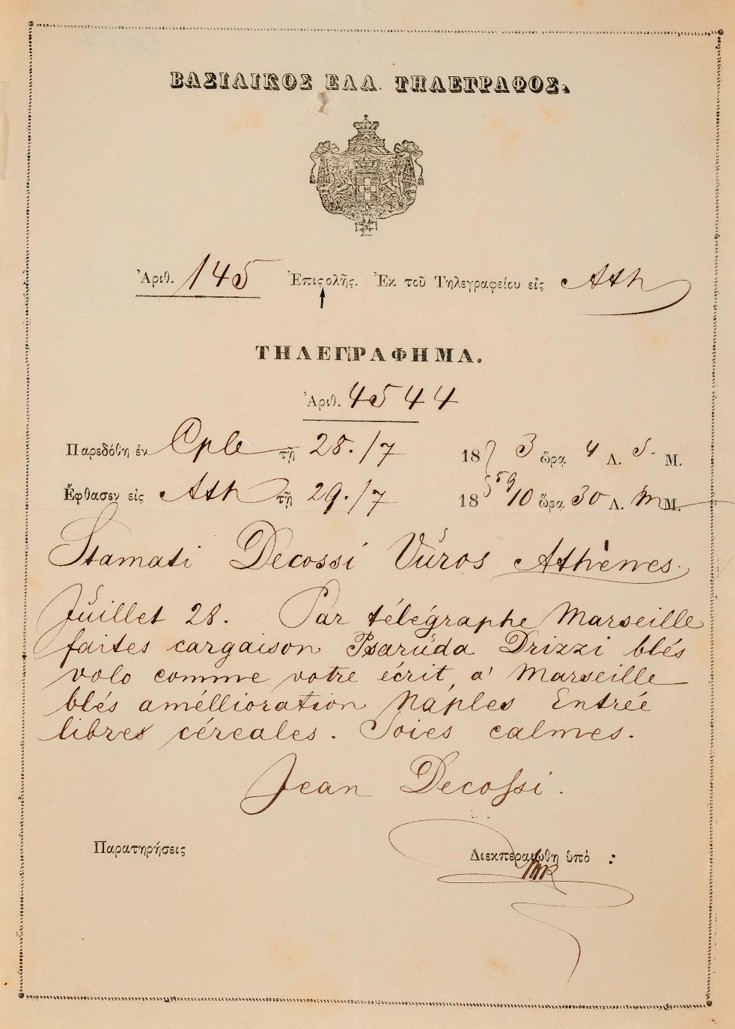 ΒΑΣΙΛΙΚΟΣ ΕΛΛ. ΤΗΛΕΓΡΑΦΟΣ.
Ἀριθ. 145 Ἐπιςολῆς. Ἐκ τοῦ Τηλεγραφείου εἰς Ath
ΤΗΛΕΓΡΑΦΗΜΑ.
Ἀριθ. 4544
Παρεδόθη ἐν Cple τῇ 28./7 18 3 ὥρα 4 Λ. S. Μ.
Ἔφθασεν εἰς Ath τῇ 29./7 18 59 10 ὥρα 30 Λ. m Μ.
Stamati Decossi Vŭros Athènes.
Jŭillet 28. Par télégraphe Marseille
faites cargaison Psarŭda Drizzi blés
volo comme votre écrit, a' Marseille
blés améllioration Náples Entrée
libres céreales. Soies calmes.
Jean Decossi.
Παρατηρήσεις Διεκπεραιώθη ὑπὸ :